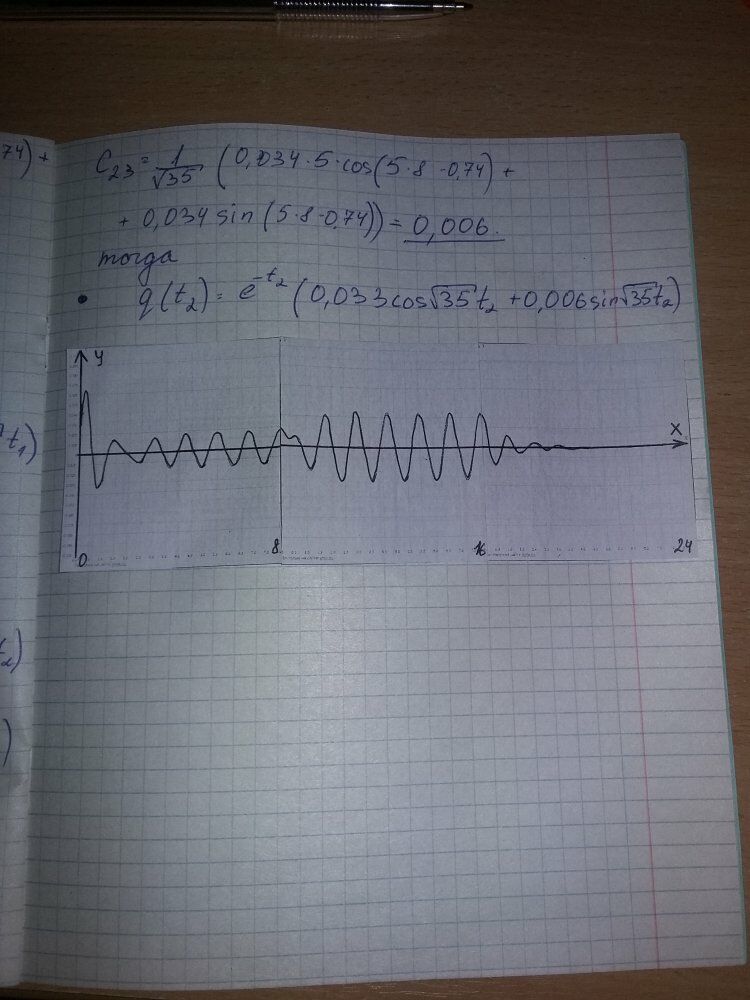 74) +
C₂₃ = 1/√35 (0,034·5·cos(5·8-0,74) +
+ 0,034 sin(5·8-0,74)) = 0,006.
тогда
• q(t₂) = e^(-t₂) (0,033cos√35 t₂ + 0,006sin√35 t₂)
y
t₁)
x
0 8 16 24
t₂)
)